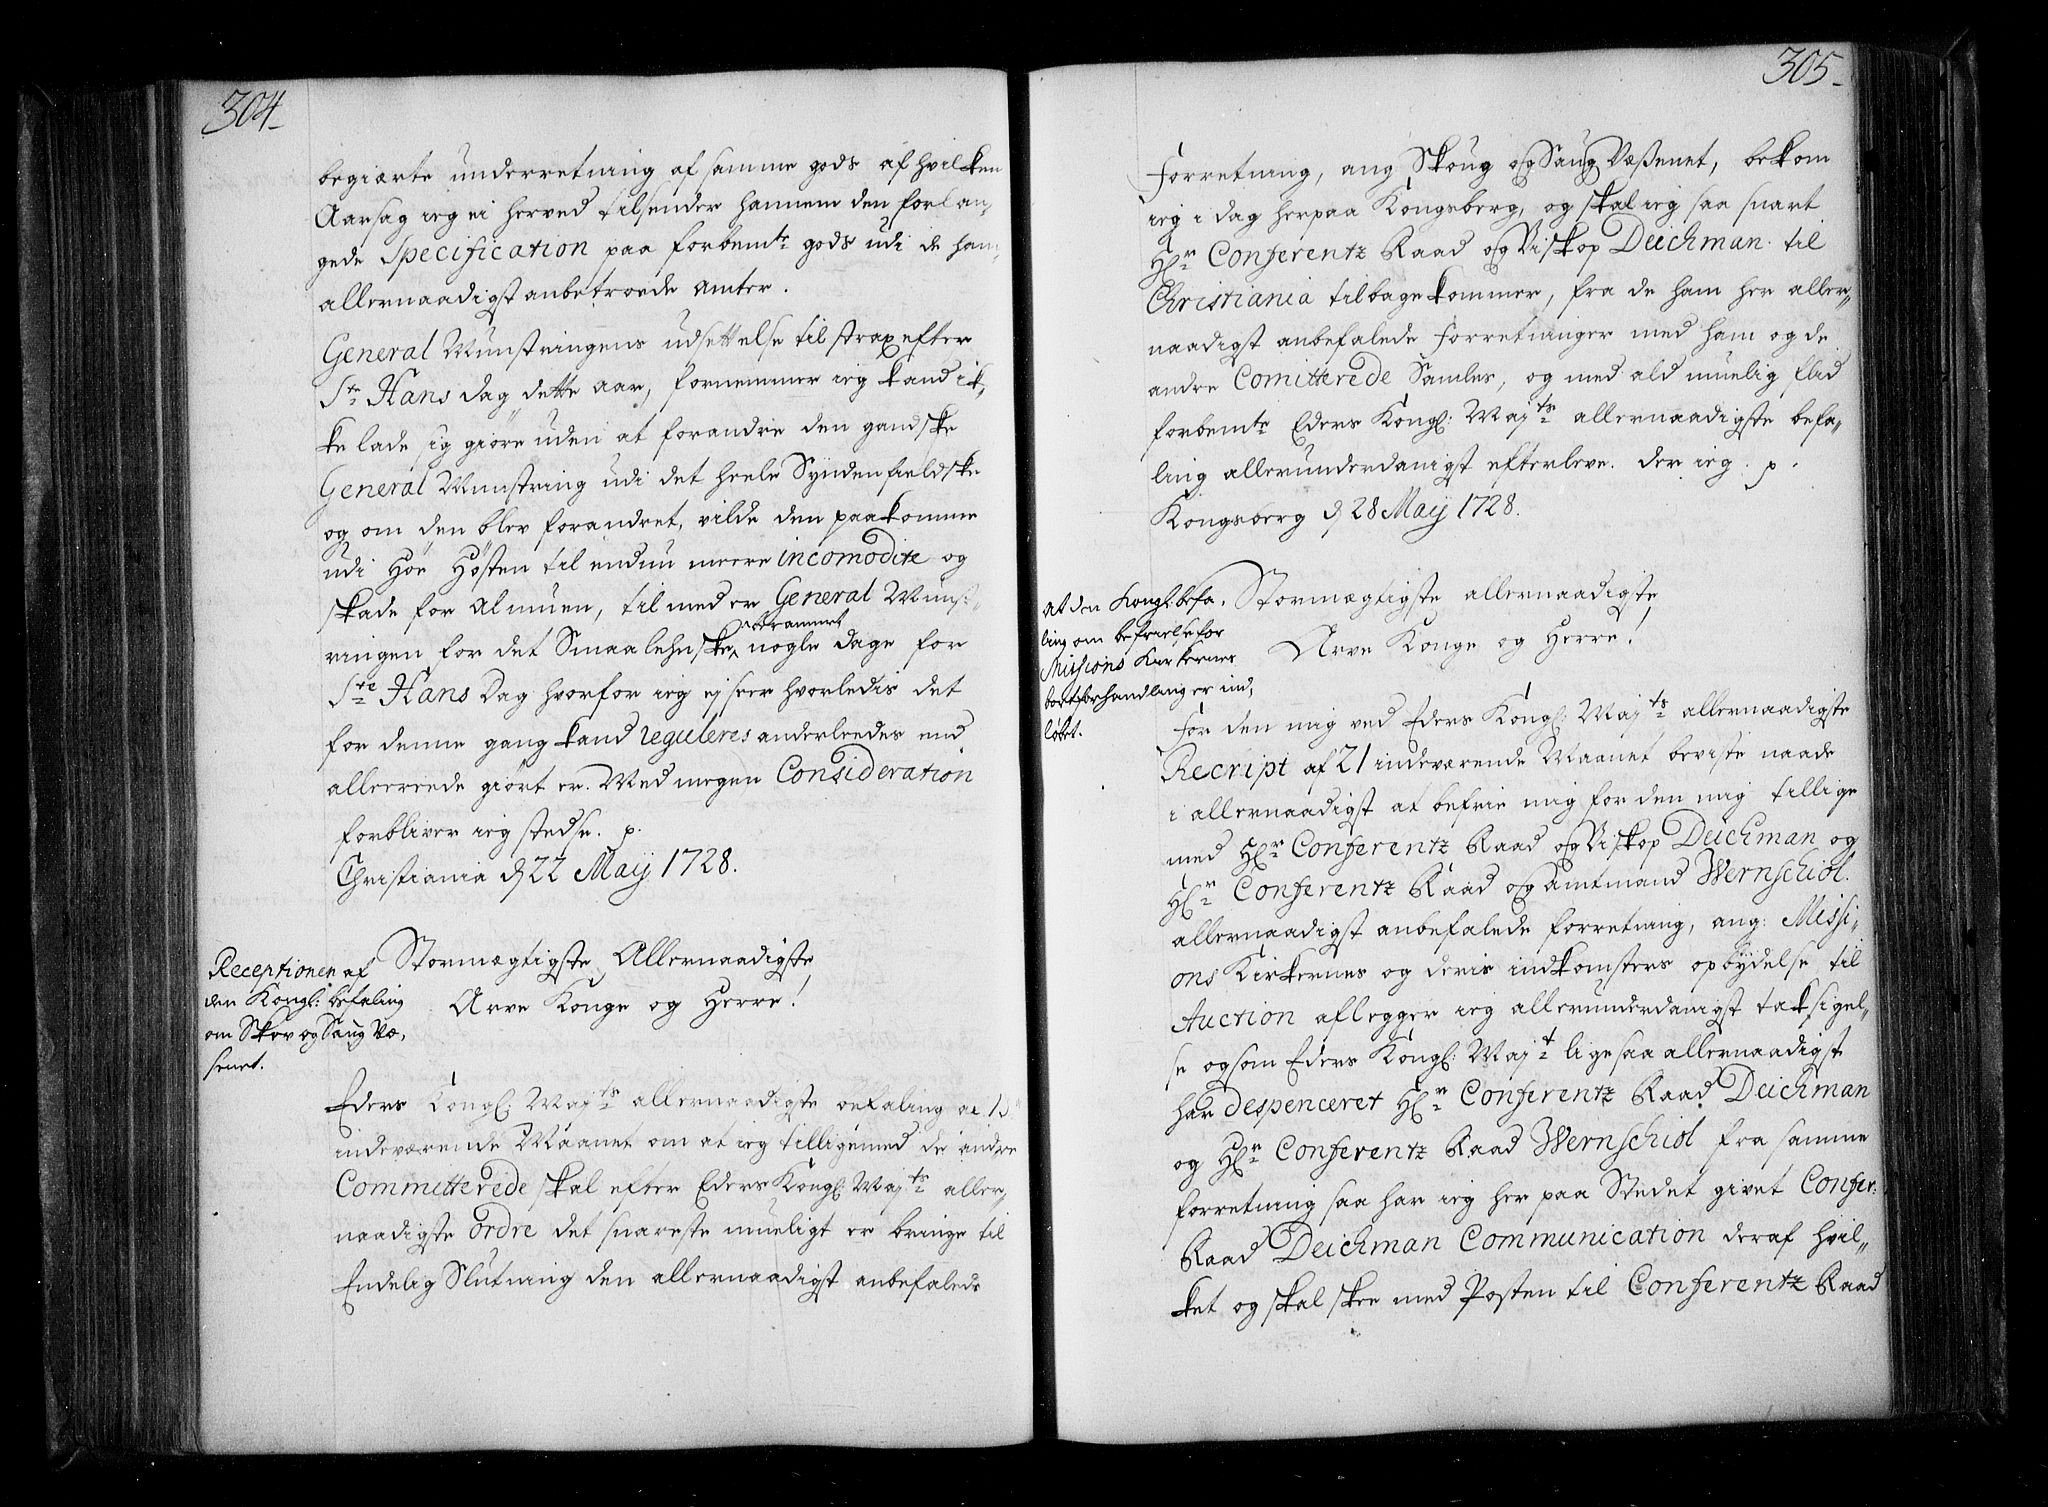 304
begiærte underretning af samme gods af hvilken
Aarsag ieg ei herved tilsender hannem den forlan-
gede Specification paa forbemte gods udi de ham
allernaadigst anbetroede Amter.
General Mynstringens udsettelse til strax efter
Ste Hans dag dette aar, fornemmer ieg kand ik-
ke lade sig giøre uden at forandre den gandske
General Munstring udi det heele Syndenfieldske
og om den blev forandret, vilde den paakomme
udi Høe Høsten til endnu meere incomodite og
skade for Almuen, til med er General Munst-
berammet
ringen for det Smaalehnske nogle dage for
Ste Hans Dag hvorfor ieg ej seer hvorledis det
for denne gang kand reguleres anderleedes end
allereede giort er. Med megen Consideration
forbliver ieg stedse. p.
Christiania d 22 Maij 1728.
Receptionen af
den Kongl: befaling
om Skov og Saug Væ-
senet.
Stormægtigste Allernaadigste
Arve Konge og Herre!
Eders Kongl: Majts allernaadigste befaling af 15
indeværende Maanet om at ieg tilligemed de andre
Committerede skal efter Eders Kongl: Majts aller-
naadigste Ordre det snareste mueligt er bringe til
Endelig Slutning den allernaadigst anbefalede
305
Forretning, ang Skoug og Saug Væsenet, bekom
ieg i dag herpaa Kongsberg, og skal ieg saa snart
Hr Conferentz Raad og Biskop Deichman til
Christiania tilbagekommer, fra de ham her aller-
naadigst anbefalede forretninger med ham og de
andre Comitterede Samles, og med ald muelig flid
forbemte Eders Kongl: Majts allernaadigste befa-
ling allerunderdanigst efterleve. der ieg. p.
Kongsberg d 28 Maij 1728.
At den Kongl: befa-
ling om befrielse for
Missions Kirkernes
bortforhandling er ind-
løbet.
Stormægtigste allernaadigste
Arve Konge og Herre!
For den mig ved Eders Kongl: Majts allernaadigste
Recript af 21 indeværende Maanet beviste naade
i allernaadigst at befrie mig for den mig tillige
med Hr Conferentz Raad og Biskop Deichman og
Hr Conferentz Raad og Amtmand Wernschiol.
allernaadigst anbefalede forretning, ang: Missi-
ons Kirkernes og deris indkomsters opbydelse til
Auction aflegger ieg allerunderdanigst taksigel-
se og som Eders Kongl: Majt ligesaa allernaadigst
har despenceret Hr Conferentz Raad Deichman
og Hr Conferentz Raad Wernschiol fra samme
forretning saa har ieg her paa Stedet givet Confer:
Raad Deichman Communication deraf hvil-
ket og skal skee med Posten til Conferentz Raad